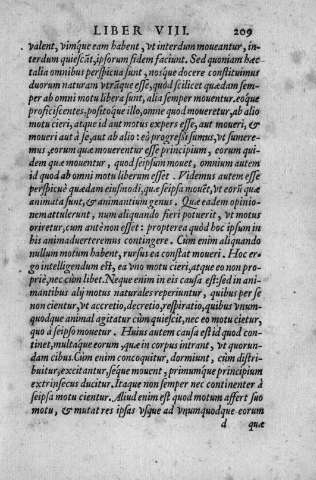 LIBER VIII. 209
valent, vimq́ue eam habent, vt interdum moueantur, in-
terdum quiescāt, ipsorum fidem faciunt. Sed quoniam hæc
talia omnibus perspicua sunt, nosque docere constituimus
duorum naturam vtrāque esse, quòd scilicet quædam sem-
per ab omni motu libera sunt, alia semper mouentur. eoque
proficiscentes, positoque illo, omne quod moueretur, ab alio
motu cieri, atque id aut motus expers esse, aut moueri, &
moueri aut à se, aut ab alio: eò progressi sumus, vt sumere-
mus, eorum quæ mouerentur esse principium, eorum qui-
dem quæ mouentur, quod seipsum mouet, omnium autem
id quod ab omni motu liberum esset. Videmus autem esse
perspicuè quædam eiusmodi, quæ seipsa mouēt, vt eorū quæ
animata sunt, & animantium genus. Quæ eadem opinio-
nem attulerunt, num aliquando fieri potuerit, vt motus
oriretur, cum antè non esset: propterea quòd hoc ipsum in
his animaduerteremus contingere. Cùm enim aliquando
nullum motum habent, rursus ea constat moueri. Hoc er-
go intelligendum est, ea vno motu cieri, atque eo non pro-
priè, nec cùm libet. Neque enim in eis causa est: sed in ani-
mantibus alij motus naturales reperiuntur, quibus per se
non cientur, vt accretio, decretio, respiratio, quibus vnum-
quodque animal agitatur cùm quiescit, nec eo motu cietur,
quo à seipso mouetur. Huius autem causa est id quod con-
tinet, multaque eorum, quæ in corpus intrant, vt quorun-
dam cibus. Cùm enim concoquitur, dormiunt, cùm distri-
buitur, excitantur, seq́ue mouent, primumque principium
extrinsecus ducitur. Itaque non semper nec continenter à
seipsa motu cientur. Aliud enim est quod motum affert suo
motu, & mutat res ipsas vsque ad vnumquodque eorum
d quæ